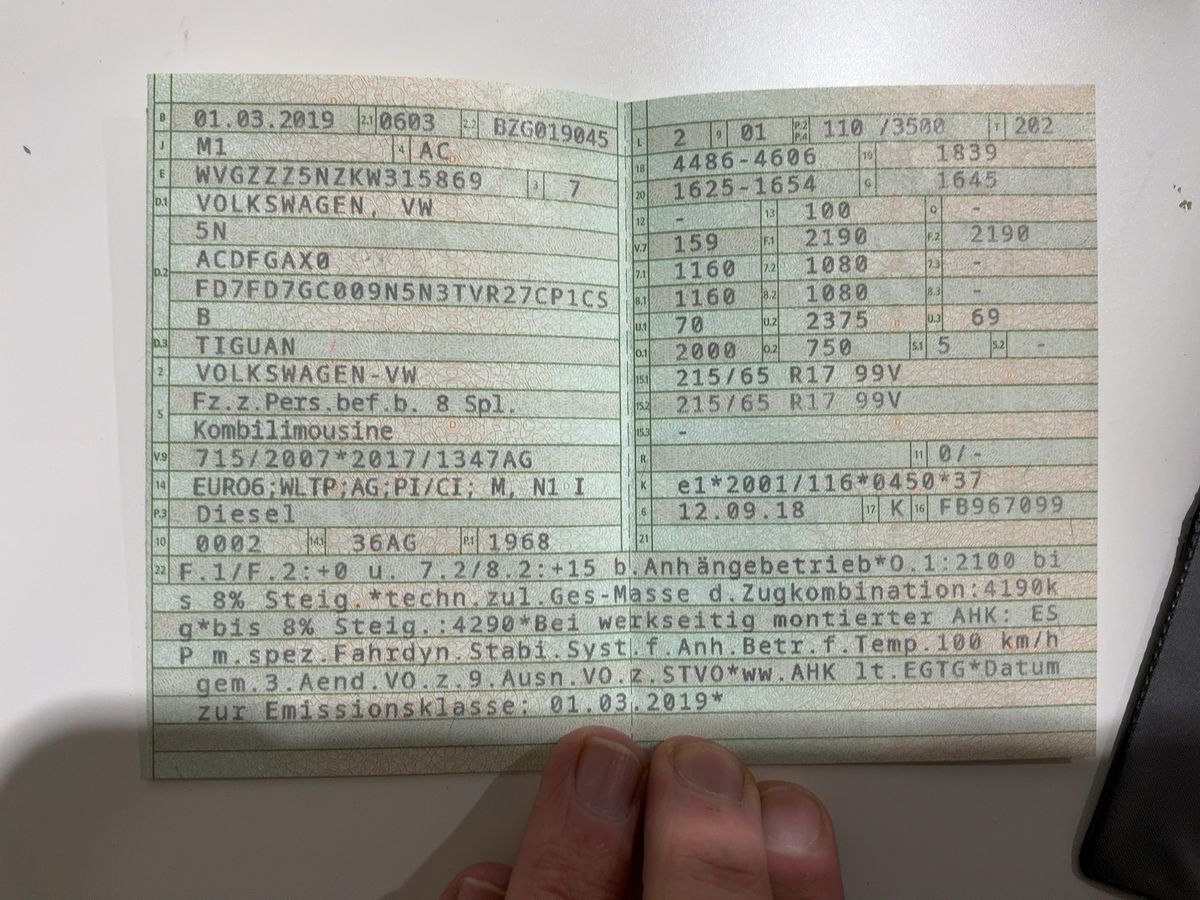 B 01.03.2019 2.1 0603 2.2 BZG019045
J M1 4 AC
E WVGZZZ5NZKW315869 3 7
D.1 VOLKSWAGEN, VW
5N
D.2 ACDFGAX0
FD7FD7GC009N5N3TVR27CP1CS
B
D.3 TIGUAN
2 VOLKSWAGEN-VW
5 Fz.z.Pers.bef.b. 8 Spl.
Kombilimousine
V.9 715/2007*2017/1347AG
14 EURO6;WLTP;AG;PI/CI; M, N1 I
P.3 Diesel
10 0002 14.1 36AG P.1 1968
L 2 9 01 P.2 P.4 110 /3500 T 202
18 4486-4606 19 1839
20 1625-1654 G 1645
12 - 13 100 Q -
V.7 159 F.1 2190 F.2 2190
7.1 1160 7.2 1080 7.3 -
8.1 1160 8.2 1080 8.3 -
U.1 70 U.2 2375 U.3 69
O.1 2000 O.2 750 S.1 5 S.2 -
15.1 215/65 R17 99V
15.2 215/65 R17 99V
15.3 -
R 11 0/-
K e1*2001/116*0450*37
6 12.09.18 17 K 16 FB967099
21
22 F.1/F.2:+0 u. 7.2/8.2:+15 b.Anhängebetrieb*O.1:2100 bi
s 8% Steig.*techn.zul.Ges-Masse d.Zugkombination:4190k
g*bis 8% Steig.:4290*Bei werkseitig montierter AHK: ES
P m.spez.Fahrdyn.Stabi.Syst.f.Anh.Betr.f.Temp.100 km/h
gem.3.Aend.VO.z.9.Ausn.VO.z.STVO*ww.AHK lt.EGTG*Datum
zur Emissionsklasse: 01.03.2019*